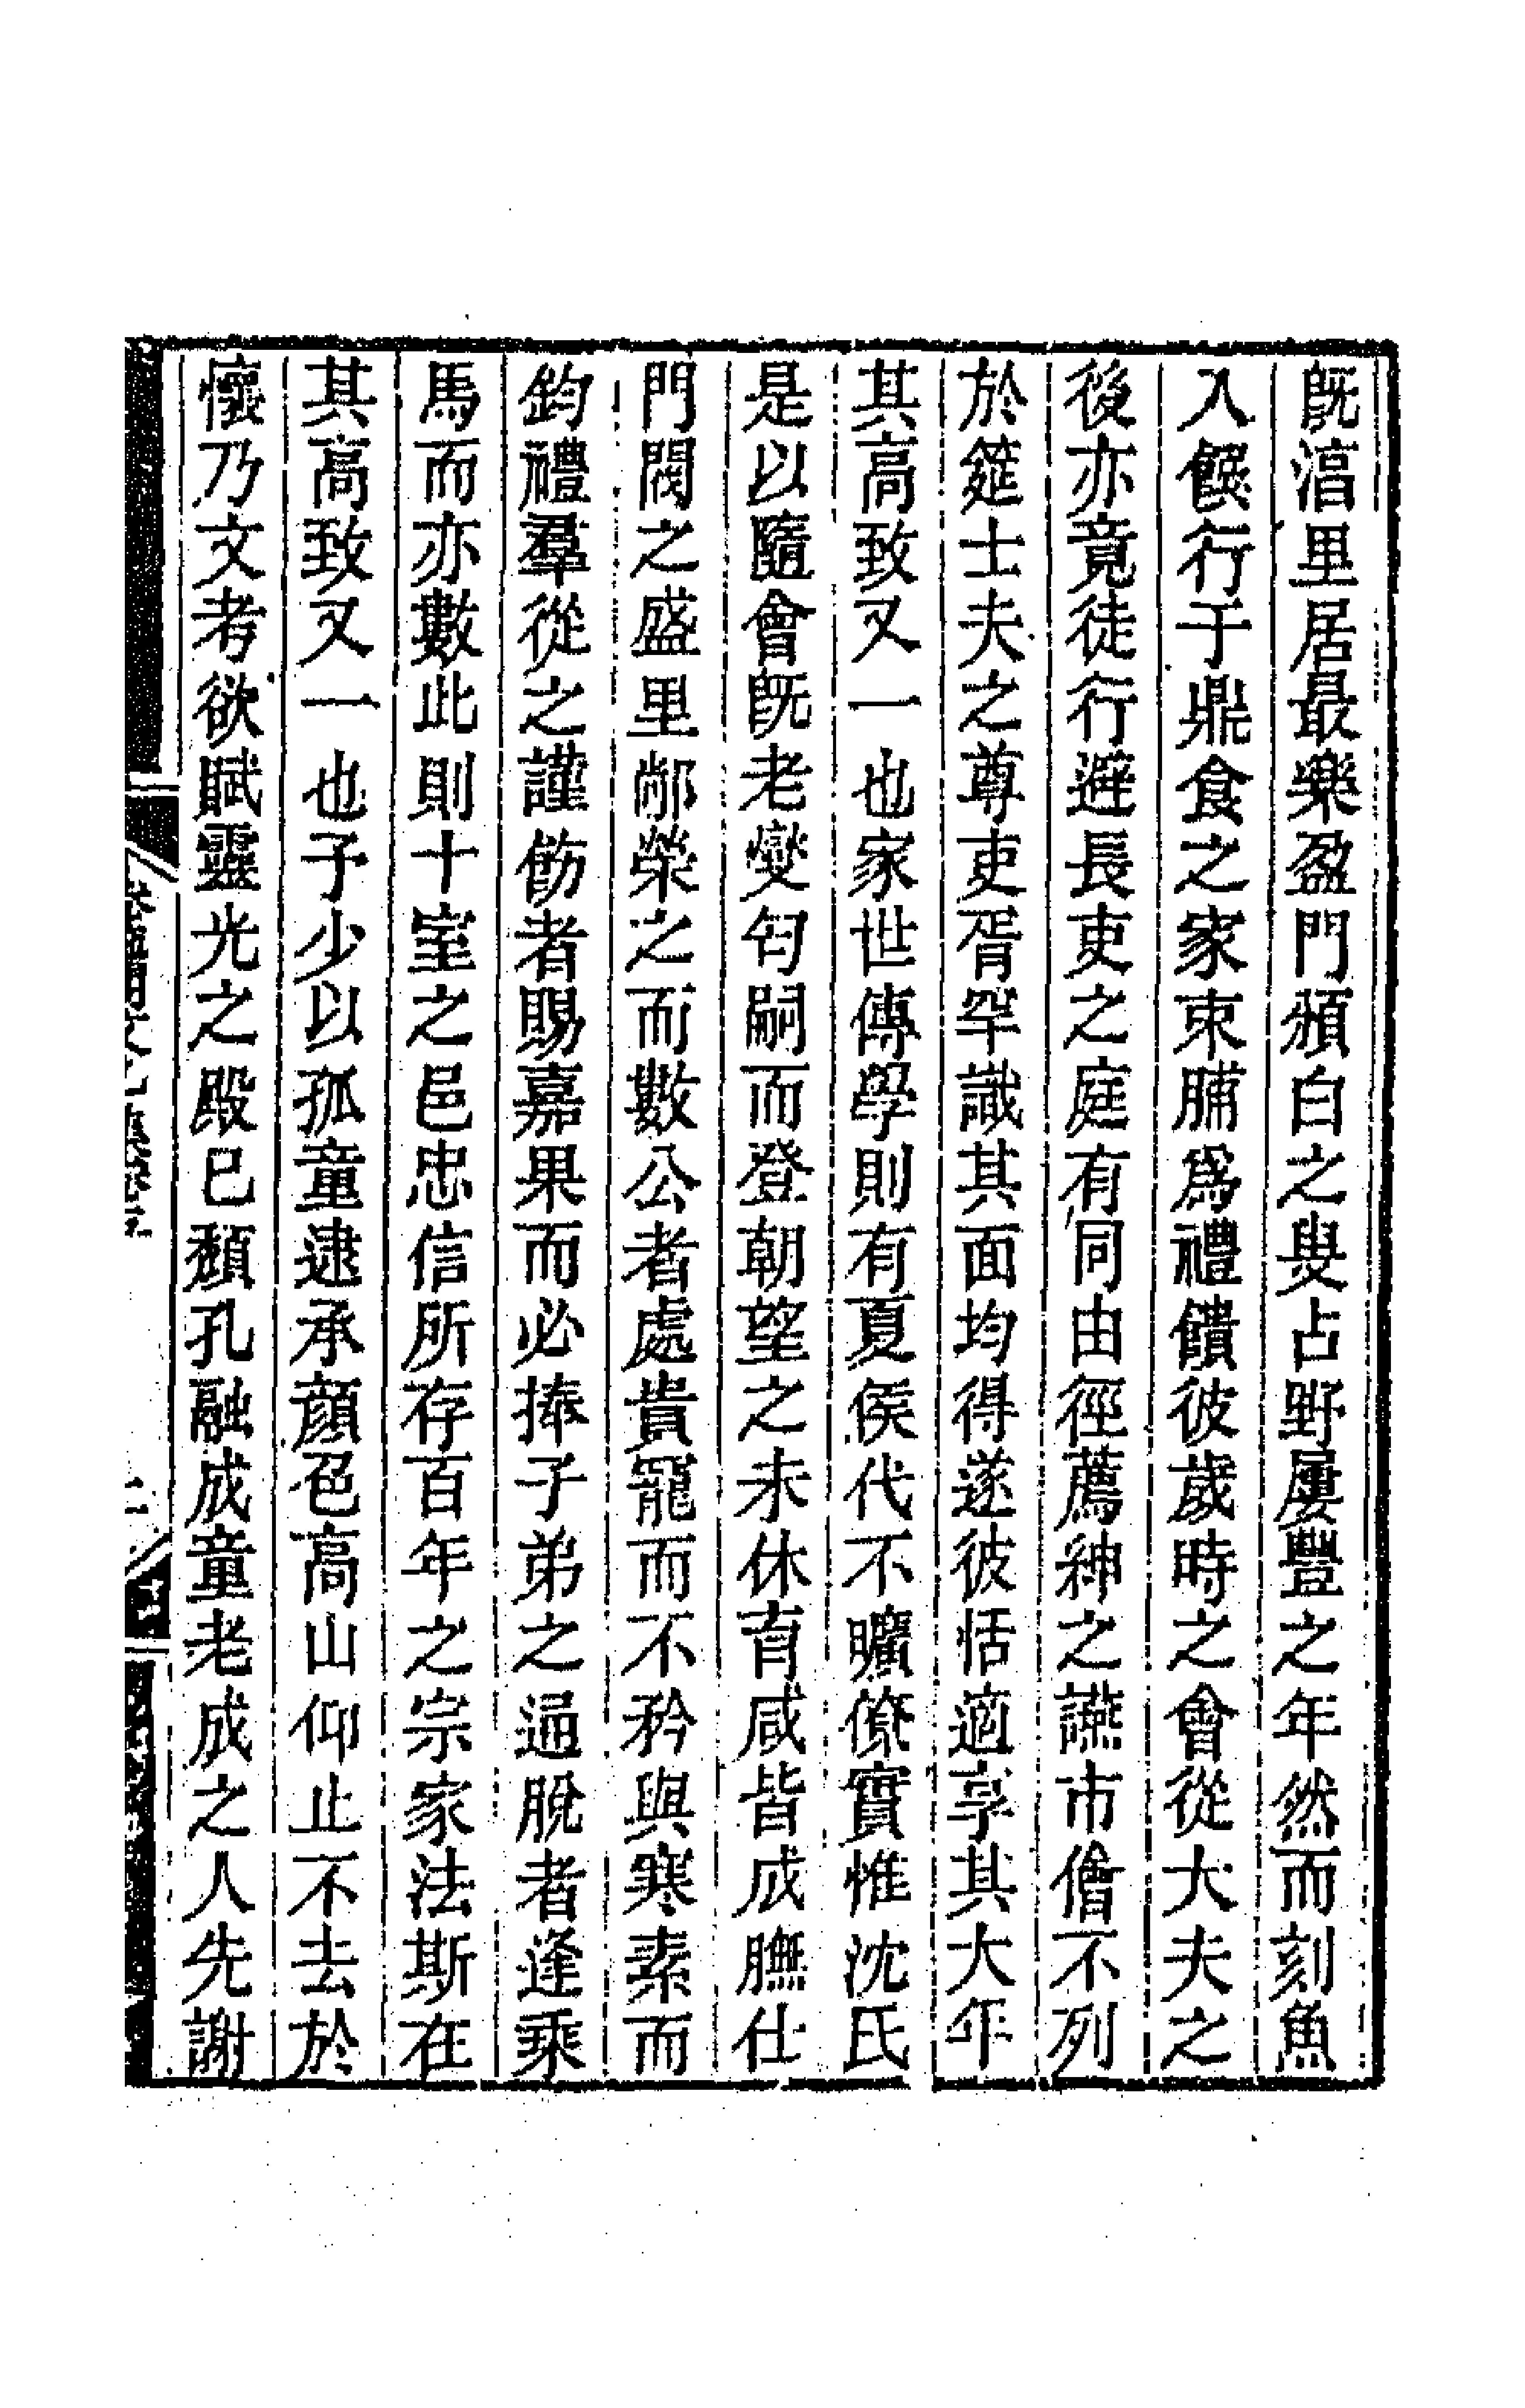 旣㴞里居最樂盈門頒白之叟占野屢豐之年然而刻魚
入饌行于鼎食之家束脯爲禮饋彼歲時之會從大夫之
後亦竟徒行避長吏之庭有同由徑薦紳之讌市儈不列
於筵士夫之尊吏胥罕識其面均得遂彼恬適享其大年
其高致又一也家世傳學則有夏侯代不曠僚實惟沈氏
是以隨會旣老燮匄嗣而登朝望之未休育咸皆成膴仕
門閥之盛里鄰榮之而數公者處貴寵而不矜與寒素而
鈞禮羣從之謹飭者賜嘉果而必捧子弟之逋脫者逢乘
馬而亦數此則十室之邑忠信所存百年之宗家法斯在
其高致又一也予少以孤童逮承顏色高山仰止不去於
懷乃文考欲賦靈光之殿已頹孔融成童老成之人先謝